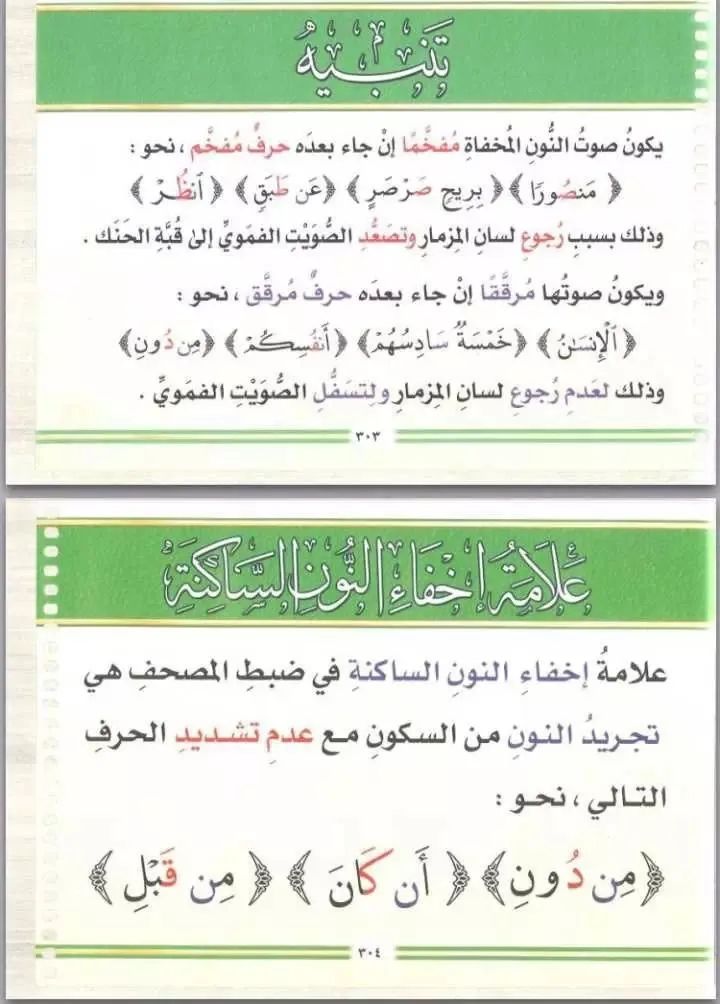 تَنْبِيهٌ
يكونُ صوتُ النُّونِ المُخفاةِ مُفخَّمًا إنْ جاء بعدَه حرفٌ مُفخَّم ، نحو :
﴿ مَنصُورًا ﴾ ﴿ بِرِيحٍ صَرْصَرٍ ﴾ ﴿ عَن طَبَقٍ ﴾ ﴿ ٱنظُرْ ﴾
وذلك بسببِ رُجوعِ لسانِ المِزمارِ وتصَعُّدِ الصُّوَيْتِ الفمَويِّ إلىٰ قُبَّةِ الحَنَك .
ويكونُ صوتُها مُرقَّقًا إنْ جاء بعدَه حرفٌ مُرقَّق ، نحو :
﴿ ٱلْإِنسَـٰنُ ﴾ ﴿ خَمْسَةٌ سَادِسُهُمْ ﴾ ﴿ أَنفُسِكُمْ ﴾ ﴿ مِن دُونِ ﴾
وذلك لعَدمِ رُجوعِ لسانِ المِزمارِ ولِتسَفُّلِ الصُّوَيْتِ الفمَويِّ .
٣٠٣
عَلَامَةُ إِخْفَاءِ النُّونِ السَّاكِنَةِ
علامةُ إخفاءِ النونِ الساكنةِ في ضبطِ المصحفِ هي
تجريدُ النونِ من السكونِ مع عدمِ تشديدِ الحرفِ
التالي ، نحو :
﴿ مِن دُونِ ﴾ ﴿ أَن كَانَ ﴾ ﴿ مِن قَبْلِ ﴾
٣٠٤